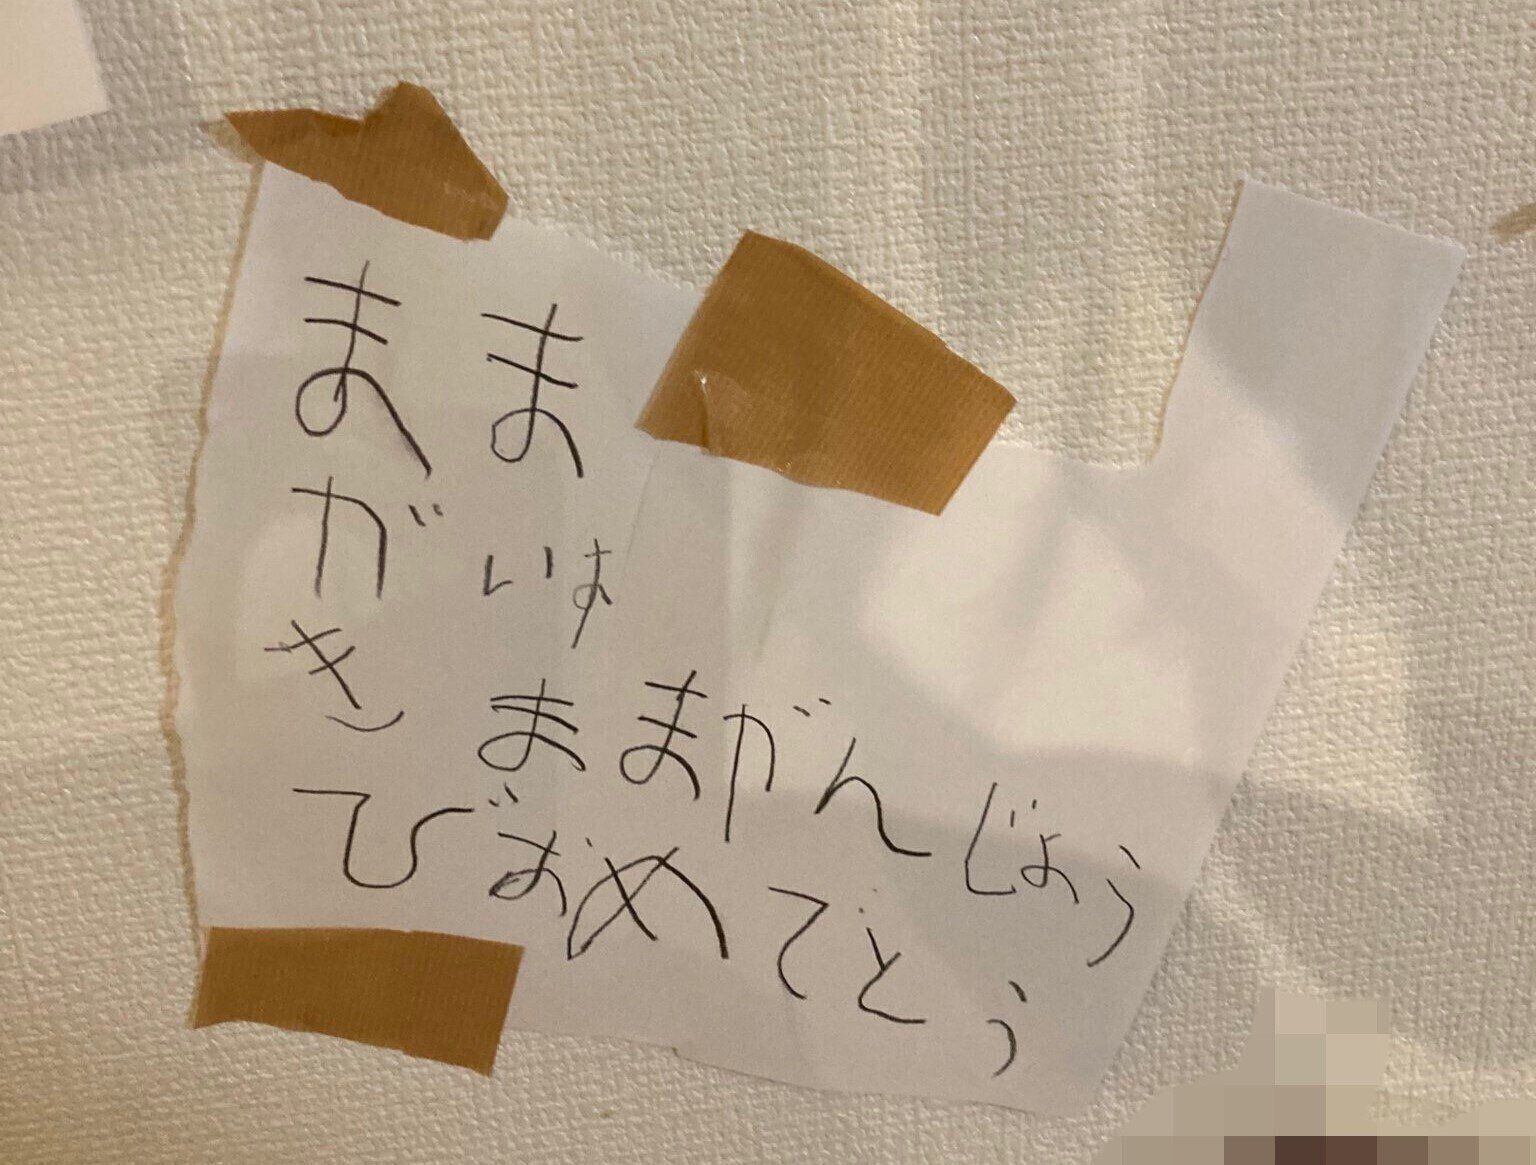 まま
がいす
き ままがんじょう
びおめてとう